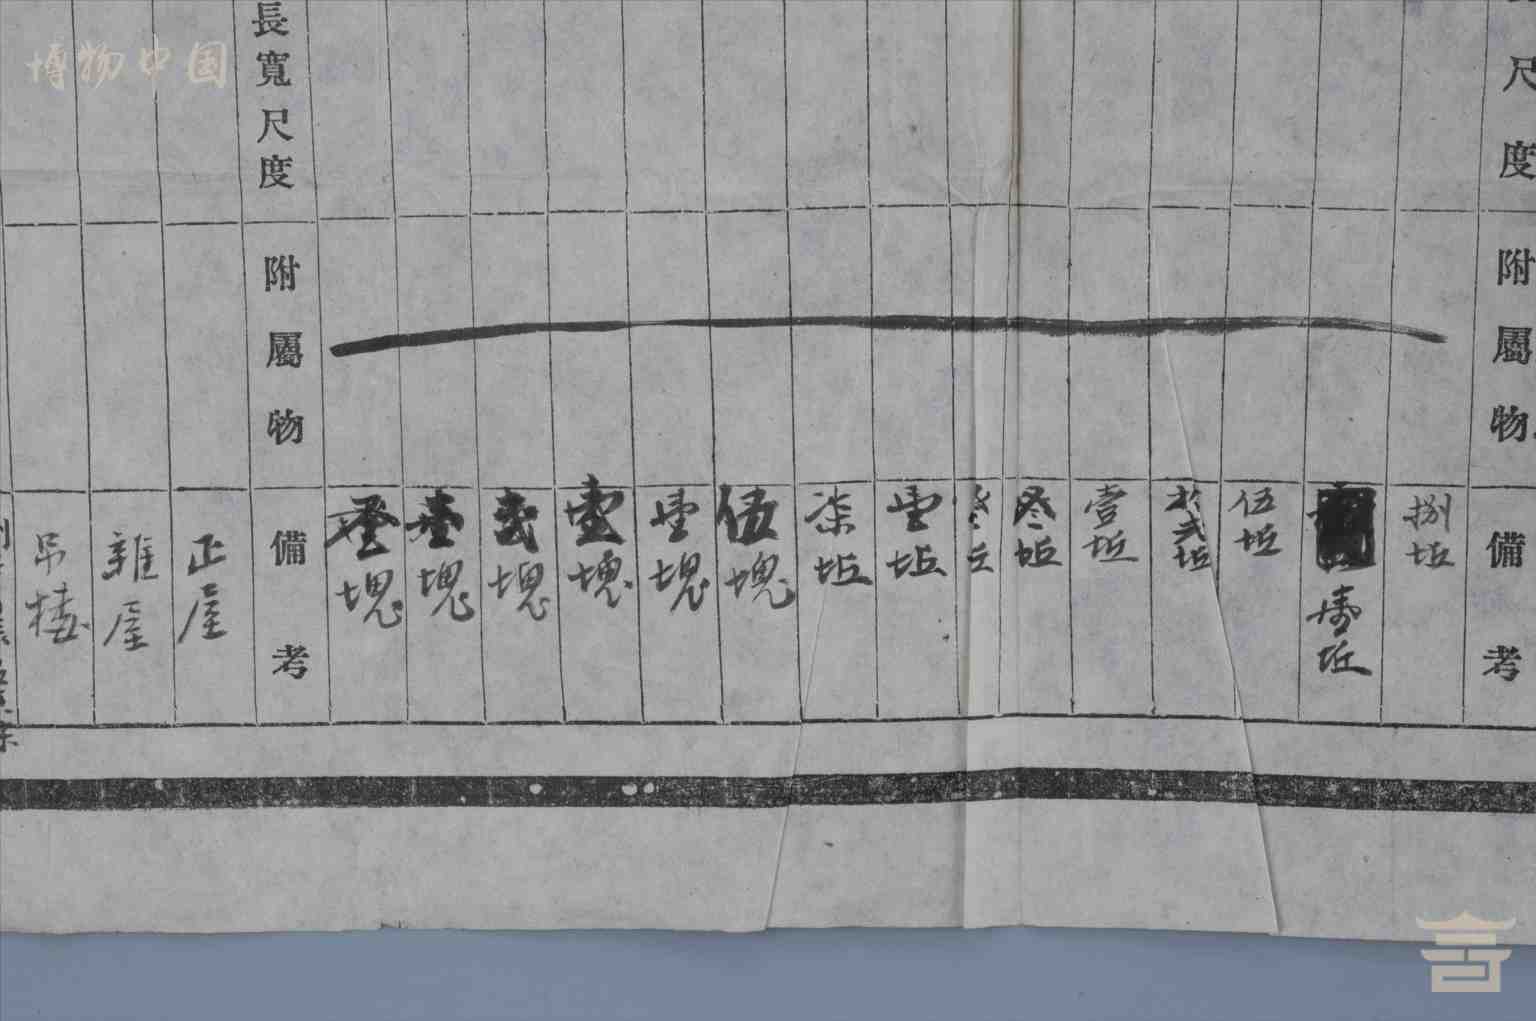 尺度
附屬物
備考
捌坵
壽坵
伍坵
坵
壹坵
叁坵
壹坵
柒坵
伍塊
壹塊
壹塊
弍塊
壹塊
塊
長寬尺度
附屬物
備考
正屋
雜屋
吊楼
博物中国